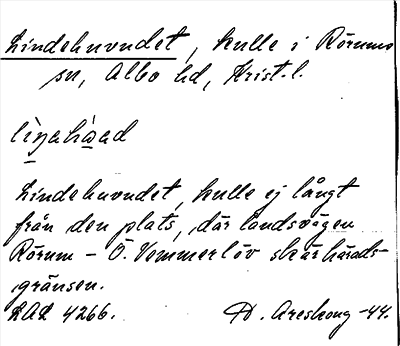 Lindehuvudet, kulle i Rörums
sn, Albo hd, Krist. l.
Lindehuvudet, kulle ej långt
från den plats, där landsvägen
Rörum – Ö. Vemmerlöv skär härads-
gränsen.
LAL 4266. Areskoug -44.